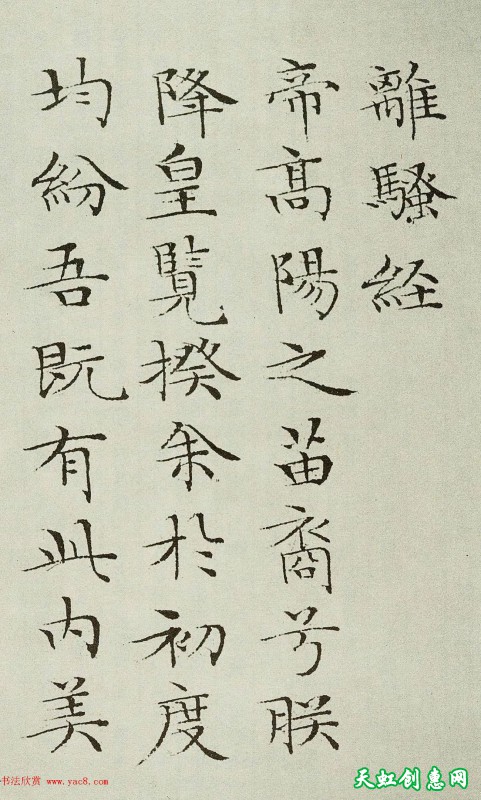 離騷経
帝髙陽之苗裔兮朕
降皇覽揆余於初度
均紛吾既有此内美
书法欣赏 www.yac8.com
天虹创惠网